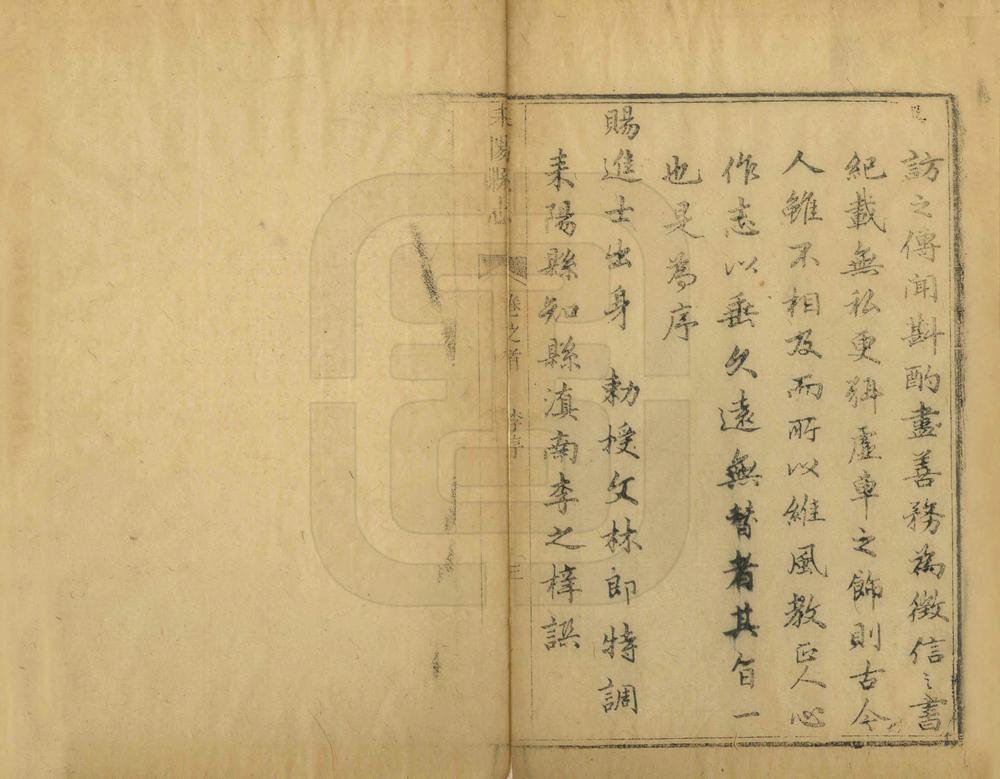 訪之傳聞斟酌盡善務為徵信之書
紀載無私更弭虛車之飾則古今
人雖不相及而所以維風教正人心
作志以垂久遠無替者其旨一
也是為序
賜進士出身 勅授文林郎特調
耒陽縣知縣滇南李之梓譔
耒陽縣志 卷之首 李序 三